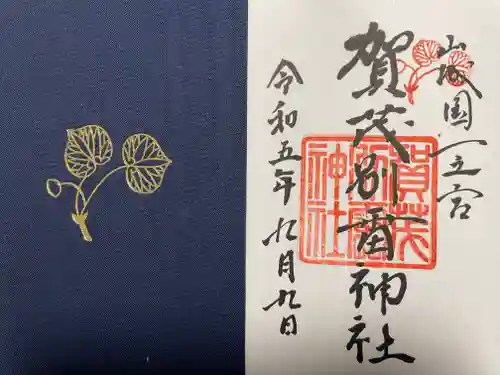 山城国一之宮
賀茂別雷神社
令和五年九月九日
賀茂
別雷
神社